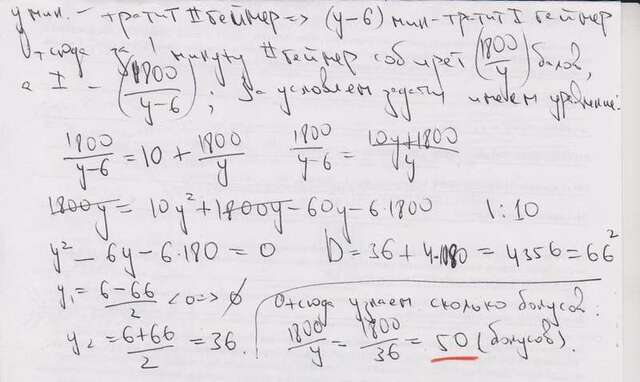 y мин. - тратит II геймер => (y-6) мин - тратит I геймер
отсюда за 1 минуту II геймер соберёт (1800/y) балов,
а I - (1800/y-6); За условием задачи имеем уравнение:
1800/y-6 = 10 + 1800/y    1800/y-6 = 10y+1800/y
1800y = 10y² + 1800y - 60y - 6·1800    1:10
y² - 6y - 6·180 = 0    D = 36 + 4·1080 = 4356 = 66²
y₁ = 6-66/2 < 0 => ∅
Отсюда узнаем сколько бонусов:
y₂ = 6+66/2 = 36.    1800/y = 1800/36 = 50 (бонусов).